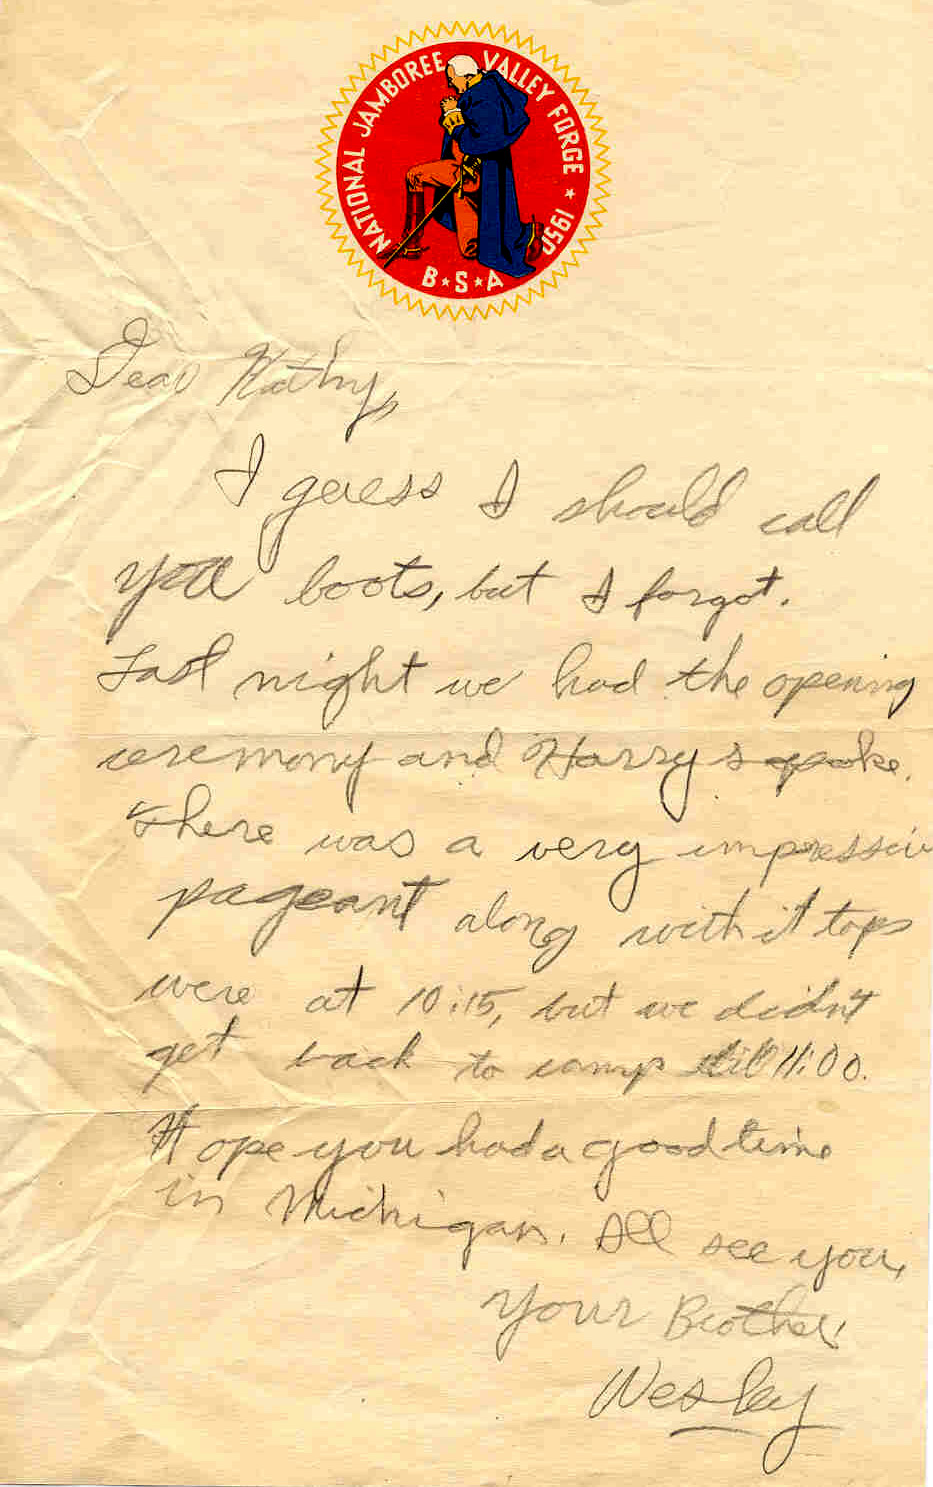 NATIONAL JAMBOREE VALLEY FORGE ★ 1950
B★S★A
Dear Kathy,
I guess I should call
you boots, but I forgot.
Last night we had the opening
ceremony and Harry spoke.
There was a very impressiv
pageant along with it taps
were at 10:15, but we didn't
get back to camp till 11:00.
Hope you had a good time
in Michigan. Ill see you,
Your Brother
Wesley